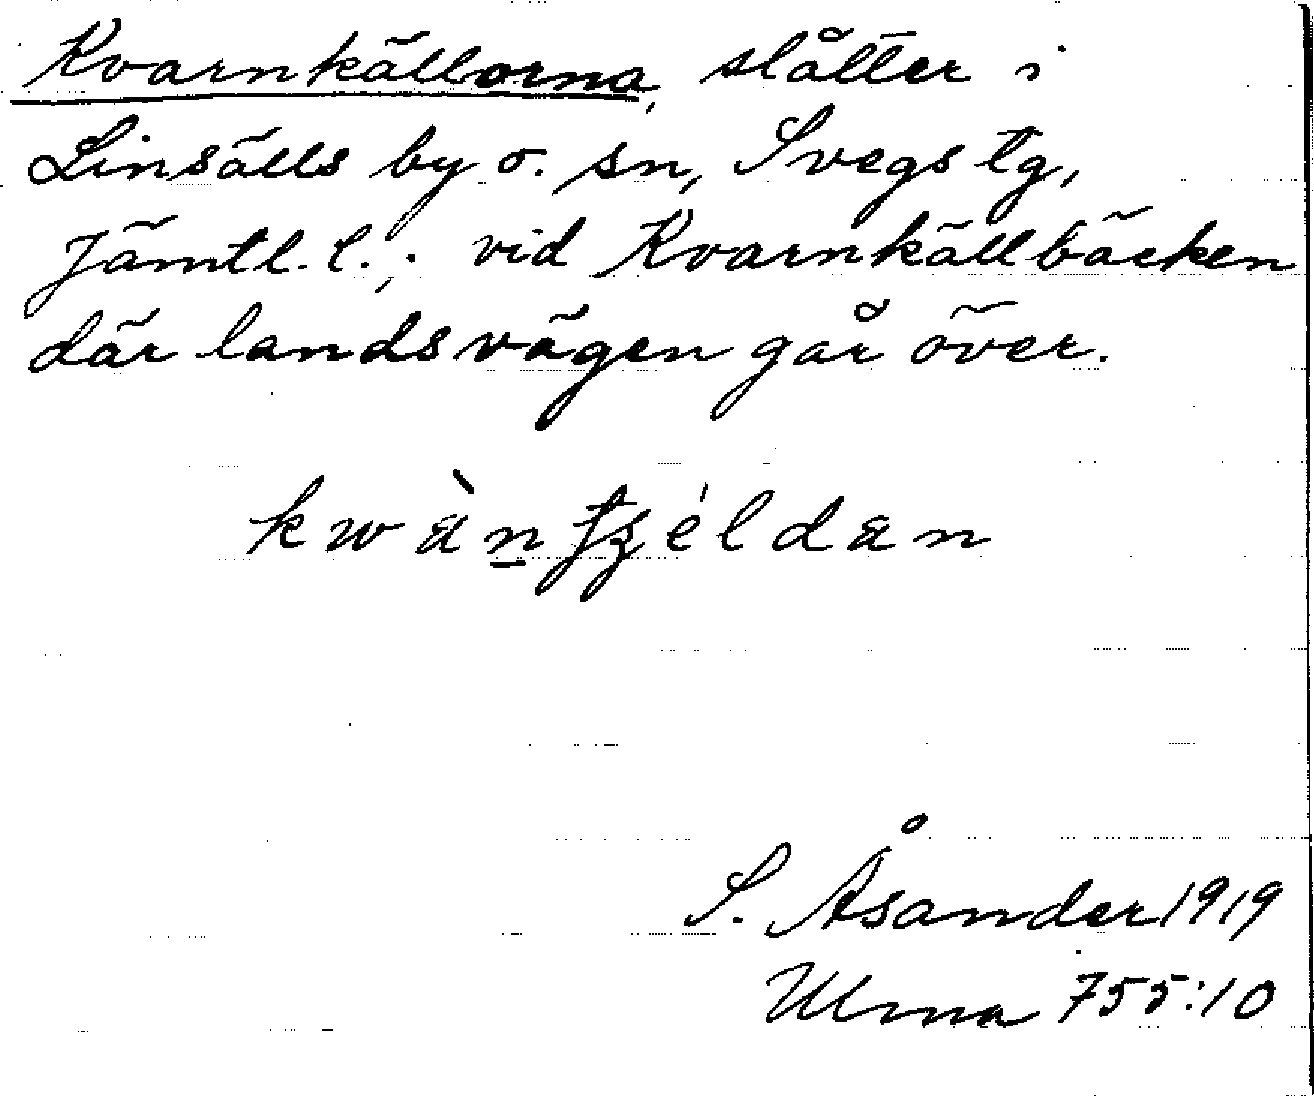 Kvarnkällorna, slåtter i
Linsälls by o. sn, Svegs tg,
Jämtl. l.; vid Kvarnkällbäcken
där landsvägen går över.
S. Åsander 1919
Ulma 755:10